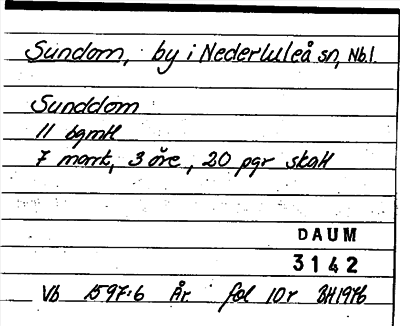 Sundom, by i Nederluleå sn, Nb.l.
Sunddom
11 bgmtl
7 mark, 3 öre, 20 pgr skatt
DAUM
3142
Vb 1597:6 År fol 10r BH1976